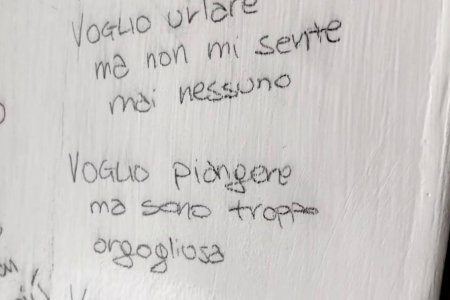 VOGLIO urlare
ma non mi sente
mai nessuno
VOGLIO piangere
ma sono troppo
orgogliosa